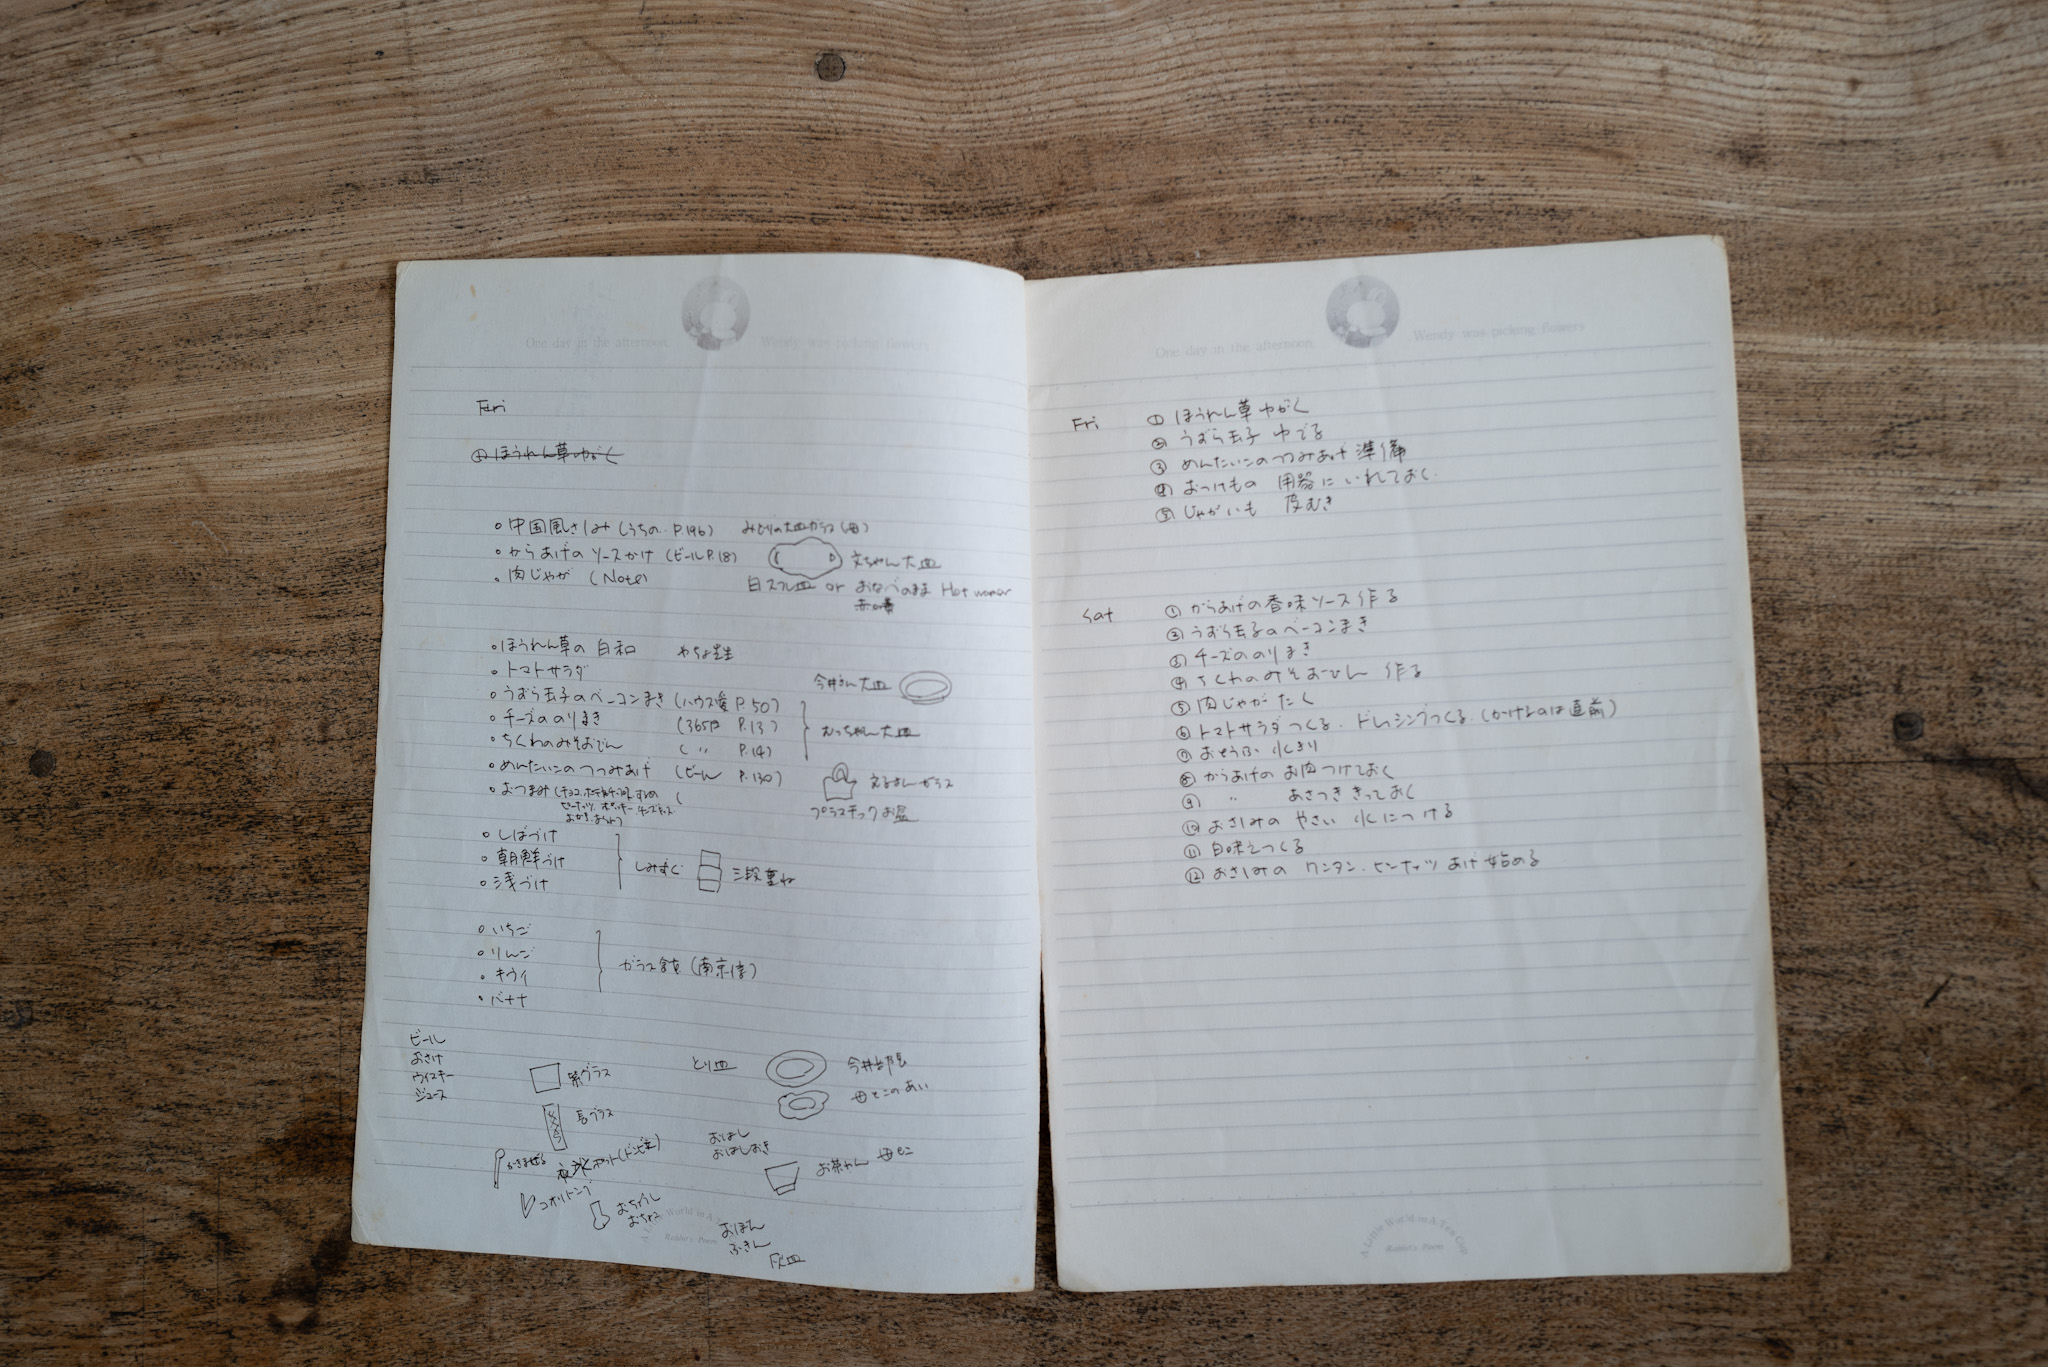 One day in the afternoon, Wendy was picking flowers
Fri
① ほうれん草ゆがく
○ 中国風さしみ (うちの.. P.196) みどりの大皿ガラス (母)
○ からあげのソースかけ (ビール P.18) 文ちゃん大皿
○ 肉じゃが (Note) 白 皿 or おなべのまま Hot
○ ほうれん草の白和
○ トマトサラダ
今井さん大皿
○ うずら玉子のベーコンまき (ハウス P.50)
○ チーズののりまき (365日 P.13) むっちゃん大皿
○ ちくわのみそおでん ( 〃 P.14)
○ めんたいこのつつみあげ (ビール P.130)
○ おつまみ (チョコ.
プラスチックお盆
○ しばづけ
○ 朝鮮づけ しみずぐ 三段重ね
○ 浅づけ
○ いちご
○ りんご
○ キウイ ガラス鉢
○ バナナ
ビール
おさけ
ウイスキー
ジュース
とり皿
グラス
長グラス
母とこのあい
おはし
おはしおき
かきまぜる
お茶わん 母とこ
コオリトング
おちょうし
おちょこ
おぼん
ふきん
灰皿
A Little World in A Tea Cup
Rabbit's Poem
One day in the afternoon, Wendy was picking flowers
Fri ① ほうれん草ゆがく
② うずら玉子 ゆでる
③ めんたいこのつつみあげ 準備
④ おつけもの 用器に いれておく.
⑤ じゃがいも 皮むき
Sat ① からあげの香味ソース作る
② うずら玉子のベーコンまき
③ チーズののりまき
④ ちくわのみそおでん 作る
⑤ 肉じゃが たく
⑥ トマトサラダつくる. ドレッシングつくる. (かけるのは直前)
⑦ おとうふ 水きり
⑧ からあげの お肉つけておく
⑨ 〃 あさつき きっておく
⑩ おさしみの やさい 水につける
⑪ 白味そつくる
⑫ おさしみの ワンタン. ピーナッツ あげ始める
A Little World in A Tea Cup
Rabbit's Poem